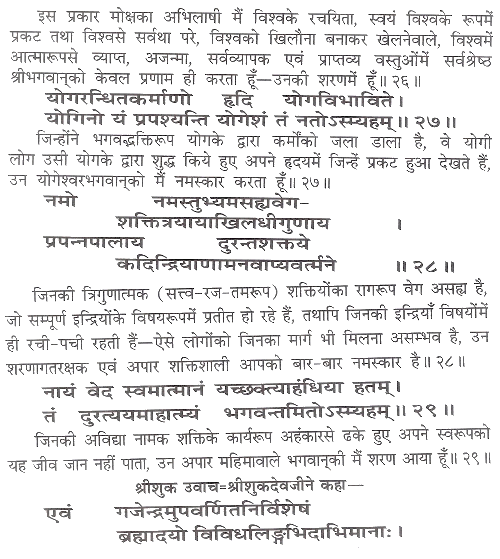 इस प्रकार मोक्षका अभिलाषी मैं विश्वके रचयिता, स्वयं विश्वके रूपमें
प्रकट तथा विश्वसे सर्वथा परे, विश्वको खिलौना बनाकर खेलनेवाले, विश्वमें
आत्मारूपसे व्याप्त, अजन्मा, सर्वव्यापक एवं प्राप्तव्य वस्तुओंमें सर्वश्रेष्ठ
श्रीभगवान्‌को केवल प्रणाम ही करता हूँ—उनकी शरणमें हूँ॥ २६॥
योगरन्धितकर्माणो हृदि योगविभाविते।
योगिनो यं प्रपश्यन्ति योगेशं तं नतोऽस्म्यहम्॥ २७॥
जिन्होंने भगवद्भक्तिरूप योगके द्वारा कर्मोंको जला डाला है, वे योगी
लोग उसी योगके द्वारा शुद्ध किये हुए अपने हृदयमें जिन्हें प्रकट हुआ देखते हैं,
उन योगेश्वरभगवान्‌को मैं नमस्कार करता हूँ॥ २७॥
नमो नमस्तुभ्यमसह्यवेग-
शक्तित्रयायाखिलधीगुणाय ।
प्रपन्नपालाय दुरन्तशक्तये
कदिन्द्रियाणामनवाप्यवर्त्मने ॥ २८॥
जिनकी त्रिगुणात्मक (सत्त्व-रज-तमरूप) शक्तियोंका रागरूप वेग असह्य है,
जो सम्पूर्ण इन्द्रियोंके विषयरूपमें प्रतीत हो रहे हैं, तथापि जिनकी इन्द्रियाँ विषयोंमें
ही रची-पची रहती हैं—ऐसे लोगोंको जिनका मार्ग भी मिलना असम्भव है, उन
शरणागतरक्षक एवं अपार शक्तिशाली आपको बार-बार नमस्कार है॥ २८॥
नायं वेद स्वमात्मानं यच्छक्त्याहंधिया हतम्।
तं दुरत्ययमाहात्म्यं भगवन्तमितोऽस्म्यहम्॥ २९॥
जिनकी अविद्या नामक शक्तिके कार्यरूप अहंकारसे ढके हुए अपने स्वरूपको
यह जीव जान नहीं पाता, उन अपार महिमावाले भगवान्‌की मैं शरण आया हूँ॥ २९॥
श्रीशुक उवाच=श्रीशुकदेवजीने कहा—
एवं गजेन्द्रमुपवर्णितनिर्विशेषं
ब्रह्मादयो विविधलिङ्गभिदाभिमानाः।